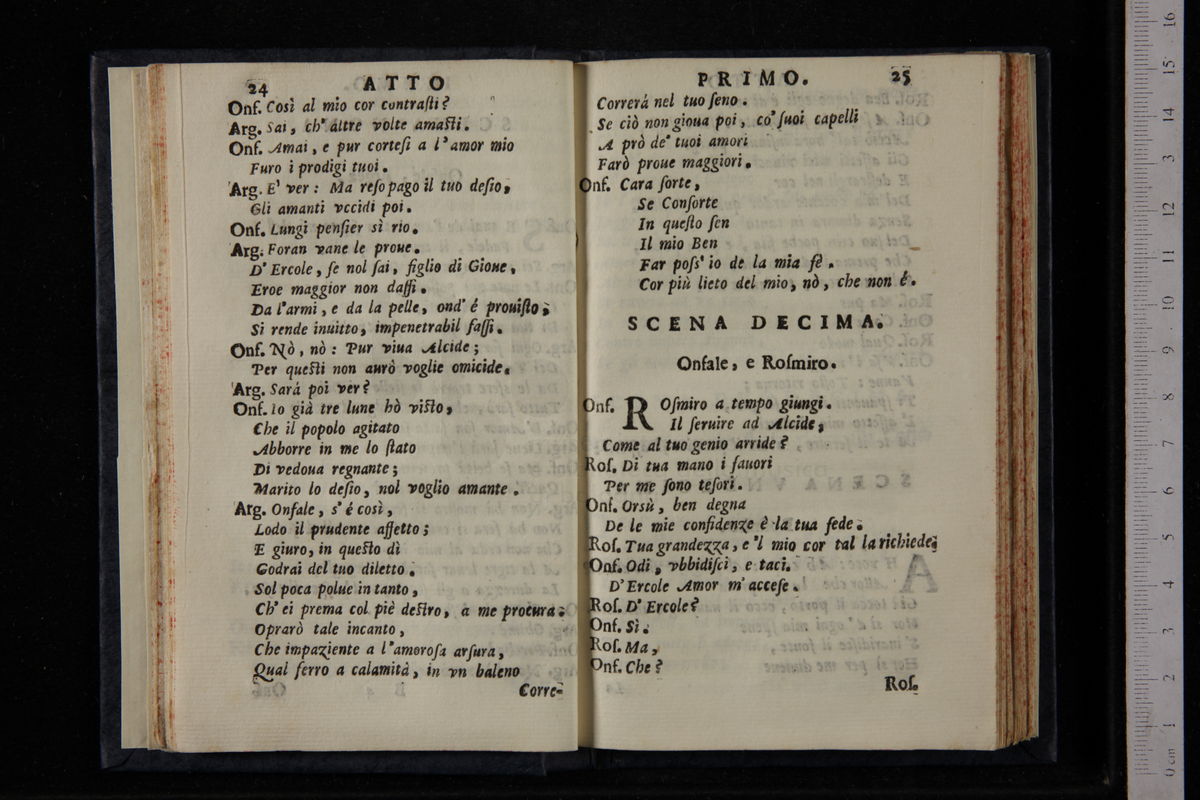 24 ATTO
Onf. Così al mio cor contraſti?
Arg. Sai, ch' altre volte amaſti.
Onf. Amai, e pur corteſi a l'amor mio
Furo i prodigi tuoi.
Arg. E' ver: Ma reſo pago il tuo deſio,
Gli amanti vccidi poi.
Onf. Lungi penſier sì rio.
Arg. Foran vane le proue.
D' Ercole, ſe nol ſai, figlio di Gioue,
Eroe maggior non daſſi.
Da l'armi, e da la pelle, ond' é prouiſto,
Si rende inuitto, impenetrabil faſſi.
Onf. Nò, nò: Pur viua Alcide;
Per queſti non aurò voglie omicide.
Arg. Sará poi ver?
Onf. Io già tre lune hò viſto,
Che il popolo agitato
Abborre in me lo ſtato
Di vedoua regnante;
Marito lo deſio, nol voglio amante.
Arg. Onfale, s' é così,
Lodo il prudente affetto;
E giuro, in queſto dì
Godrai del tuo diletto.
Sol poca polue in tanto,
Ch' ei prema col piè deſtro, a me procura:
Oprarò tale incanto,
Che impaziente a l'amoroſa arſura,
Qual ferro a calamità, in vn baleno
Corre-
PRIMO. 25
Correrá nel tuo ſeno.
Se ciò non gioua poi, co' ſuoi capelli
A prò de' tuoi amori
Farò proue maggiori.
Onf. Cara ſorte,
Se Conſorte
In queſto ſen
Il mio Ben
Far poſs' io de la mia fè.
Cor più lieto del mio, nò, che non é.
SCENA DECIMA.
Onfale, e Roſmiro.
Onf. ROſmiro a tempo giungi.
Il ſeruire ad Alcide,
Come al tuo genio arride?
Roſ. Di tua mano i fauori
Per me ſono teſori.
Onf. Orsù, ben degna
De le mie confidenze è la tua fede.
Roſ. Tua grandezza, e 'l mio cor tal la richiede.
Onf. Odi, vbbidiſci, e taci.
D' Ercole Amor m' acceſe.
Roſ. D' Ercole?
Onf. Sì.
Roſ. Ma,
Onf. Che?
Roſ.